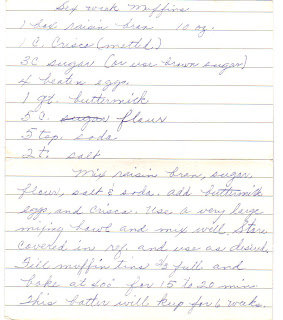 Six week Muffins
1 box raisin bran 10 oz.
1 C. Crisco (melted)
3C sugar (or use brown sugar)
4 beaten eggs
1 qt. buttermilk
5 C. sugar flour
5 tsp. soda
2 t. salt
Mix raisin bran, sugar,
flour, salt & soda. add buttermilk
eggs and crisco. Use a very large
mixing bowl and mix well. Store
covered in ref. and use as desired.
Fill muffin tins 2/3 full and
bake at 400° for 15 to 20 min
This batter will keep for 6 weeks.